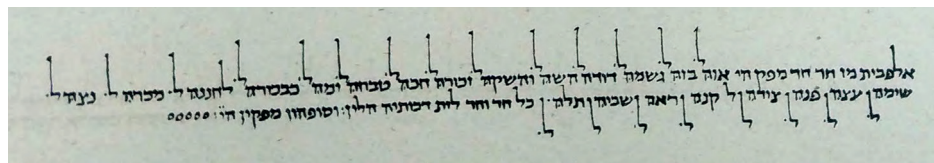 אלפבית מן חד חד מפק הי אוה ל בזה ל גשמה ל דודה ל השה ל והשקה ל זכורה ל חכה ל טבחה ל ימה ל כבכורה ל לחננה ל מכרה ל נצה ל
שימה ל עצה ל פנה ל צידה ל קנה ל ראה ל שביה ל תלה ל כל חד וחד לית דכותיה הלין וסופהון מפקין הי : ०००००